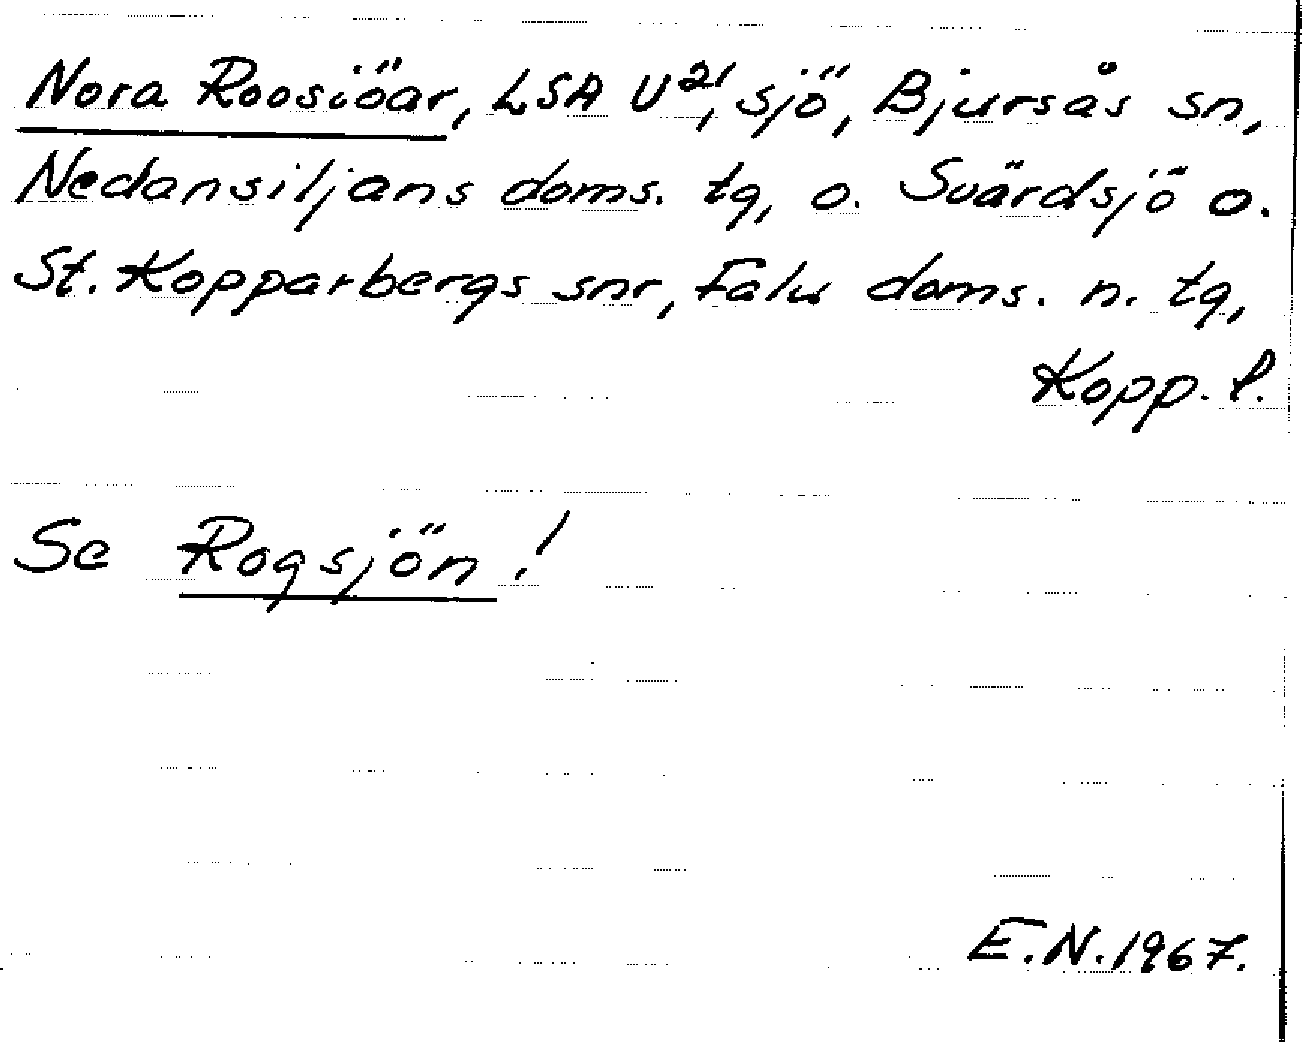 Nora Roosiöar, LSA U²¹, sjö, Bjursås sn,
Nedansiljans doms. tg, o. Svärdsjö o.
St. Kopparbergs snr, Falu doms. n. tg,
Kopp. l.
Se Rogsjön!
E.N. 1967.